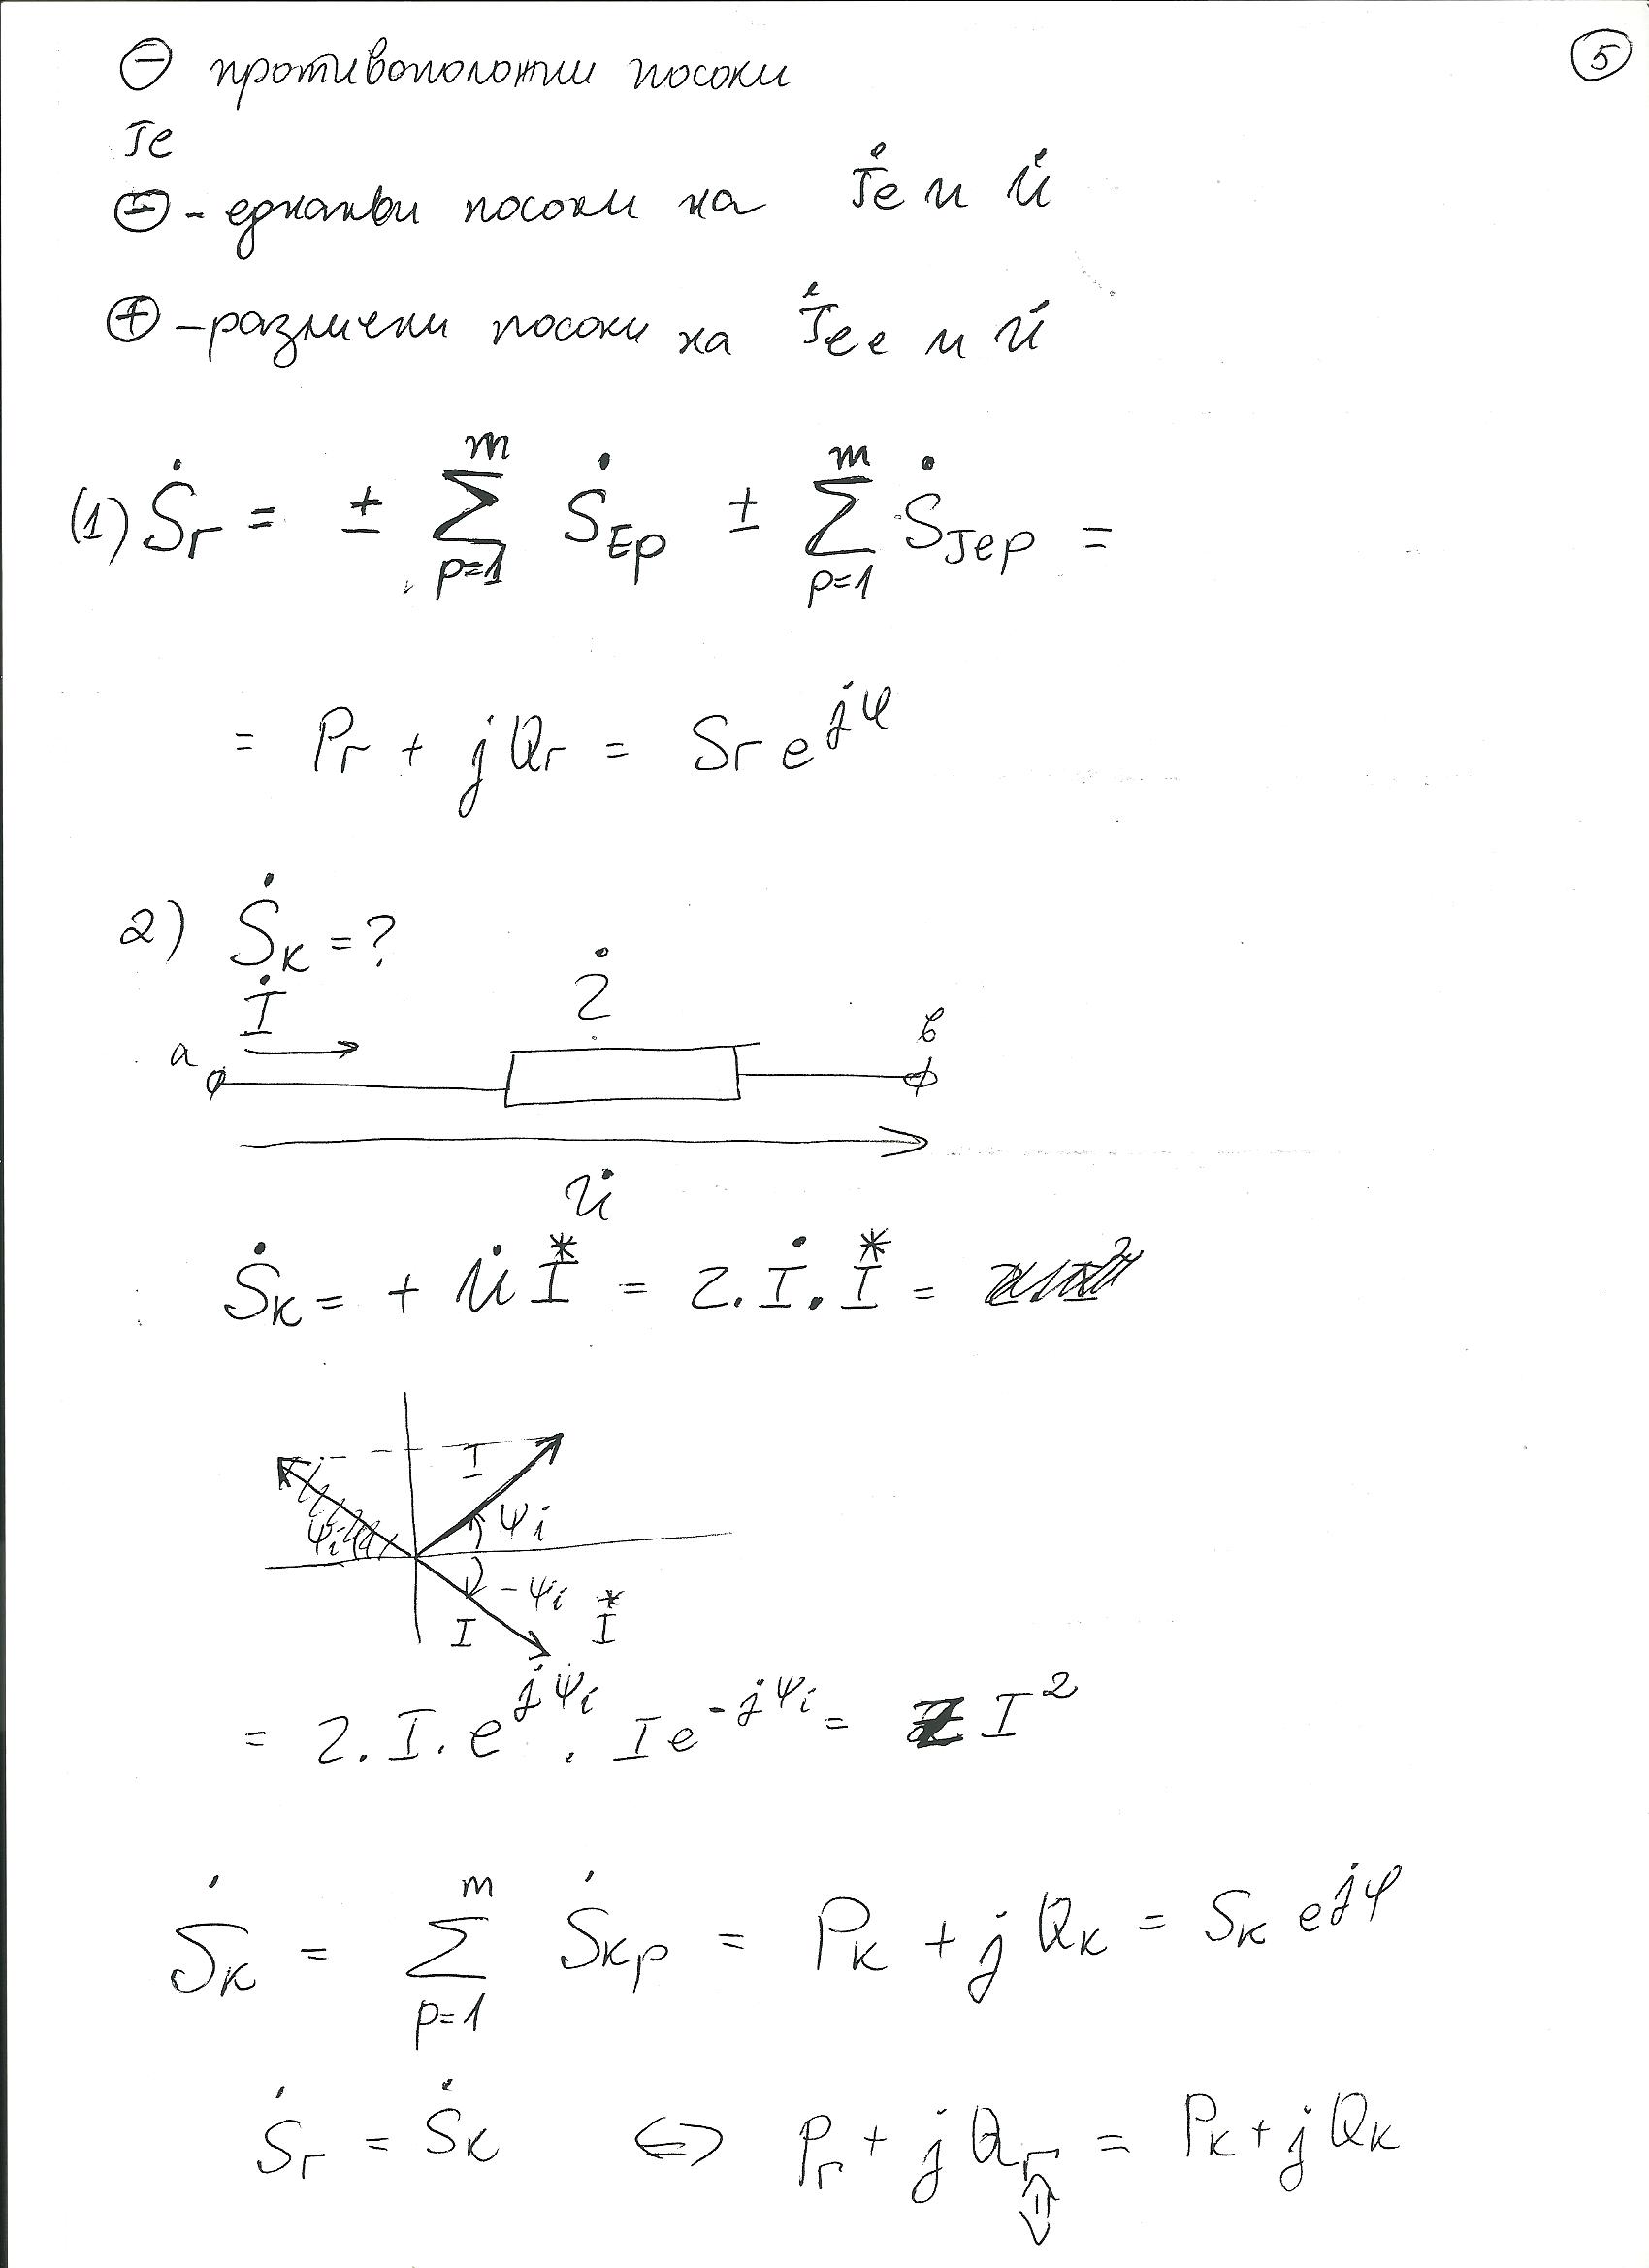 ⊖ противоположни посоки
5
Je
⊖ - еднакви посоки на J̇e и U̇
⊕ - различни посоки на J̇ee и U̇
(1) Ṡг = ± ∑ᵐₚ₌₁ ṠEp ± ∑ᵐₚ₌₁ ṠJep =
= Pг + jQг = Sг e^jφ
2) Ṡк = ?
İ Ż
a в
U̇
Ṡк = + U̇ I* = Z.İ.I* =
I
ψi ψi
-ψi
I I*
= Z.I.e^jψi . Ie^-jψi = Z I²
Ṡк = ∑ᵐₚ₌₁ Ṡкp = Pк + jQк = Sк e^jφ
Ṡг = Ṡк ⇔ Pг + jQг = Pк + jQк
⇕